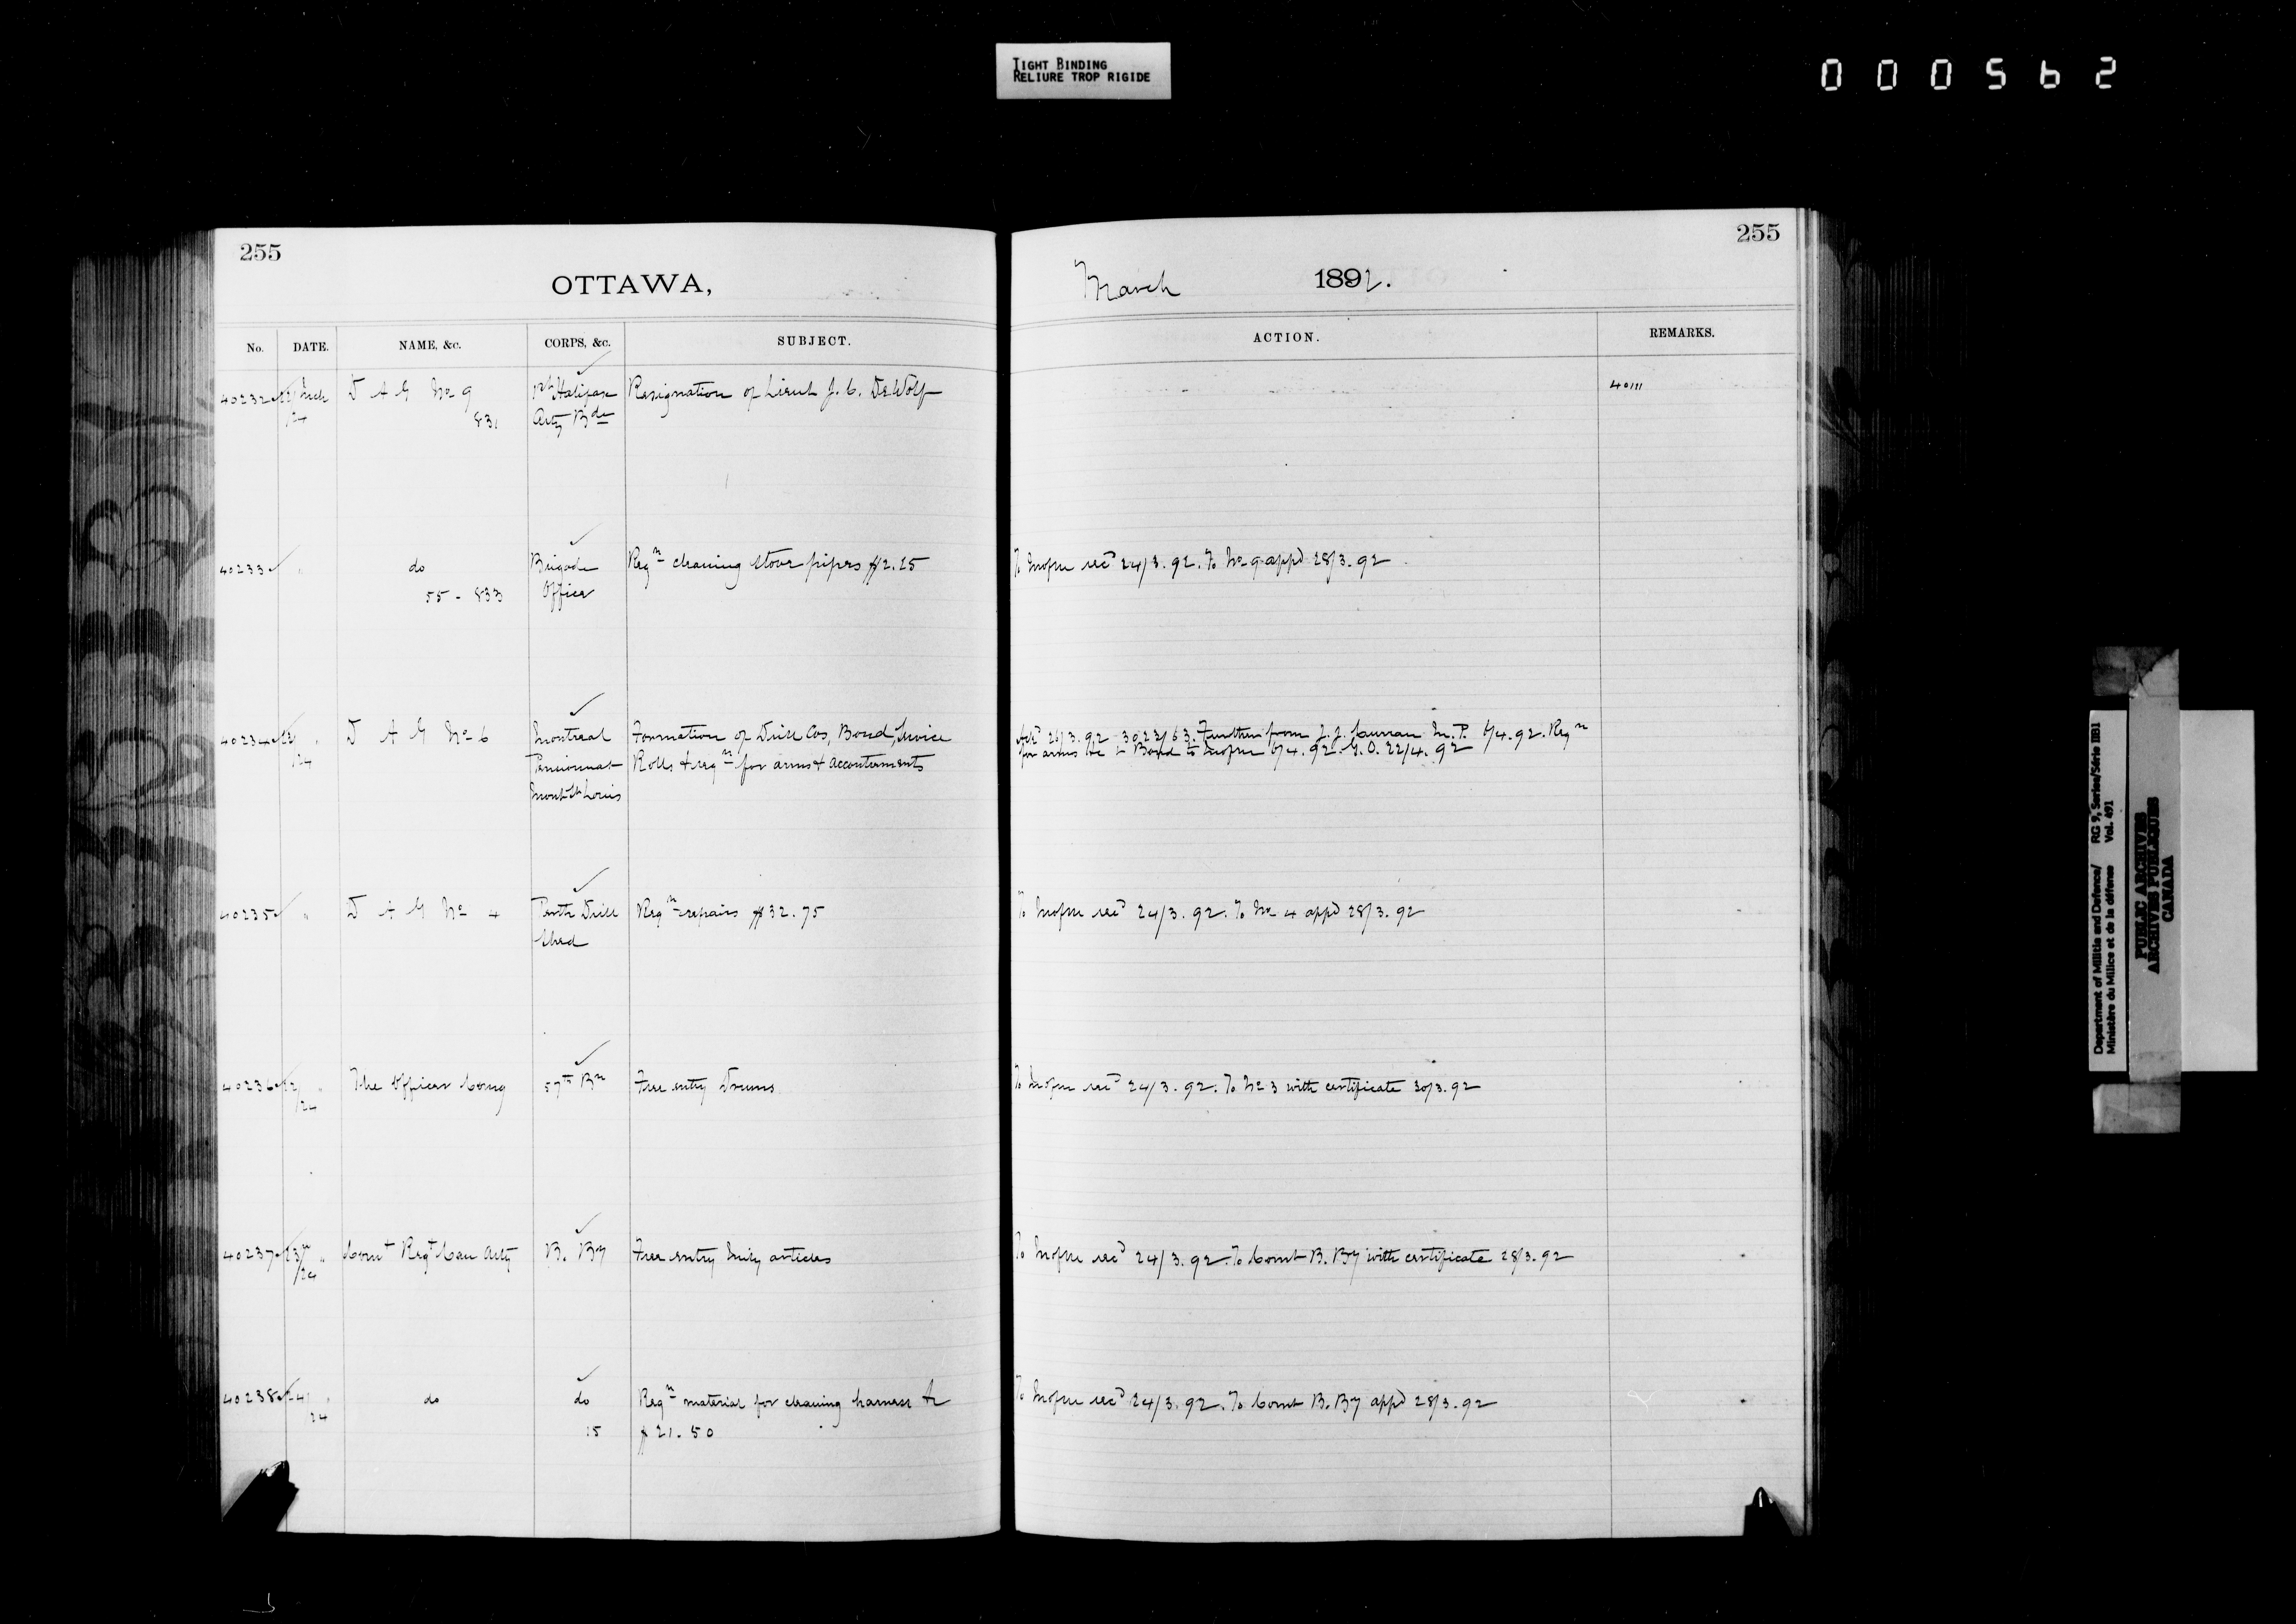 TIGHT BINDING
RELIURE TROP RIGIDE
000562
255
255
OTTAWA,
March 1892.
No. DATE. NAME, &c. CORPS, &c. SUBJECT. ACTION. REMARKS.
40232 22 Mch D A G No 9 1st Halifax Resignation of Lieut J. C. DeWolf 40111
/24 831 Arty Bde
40233 " do Brigade Reqn cleaning stove pipes $2.25 To Mofm recd 24/3.92. To No 9 appd 28/3.92
55-833 Office
40234 " D A G No 6 Montreal Formation of Drill Cos, Bond, Service 26/3.92 Further from J. J. Curran M.P. 6/4.92. Reqn
/24 Pensionnat Rolls & reqn for arms & accouterments for arms &c & Bond to 6/4.92. G.O. 22/4.92
Mont St Louis
40235 " D A G No 4 Perth Drill Reqn repairs $32.75 To Mofm recd 24/3.92. To No 4 appd 28/3.92
Shed
40236 22 " The Officer Comg 57th Bn Free entry Drums To Mofm recd 24/3.92. To No 3 with certificate 30/3.92
/24
40237 23 " Comt Regt Can Arty B. By Free entry Mily articles To Mofm recd 24/3.92. To Comt B. By with certificate 28/3.92
/24
40238 24 " do do Reqn material for cleaning harness &c To Mofm recd 24/3.92. To Comt B. By appd 28/3.92
24 15 $21.50
Department of Militia and Defence/ RG 9, Series/Série IIB1
Ministère du Milice et de la défense Vol. 491
PUBLIC ARCHIVES
ARCHIVES PUBLIQUES
CANADA